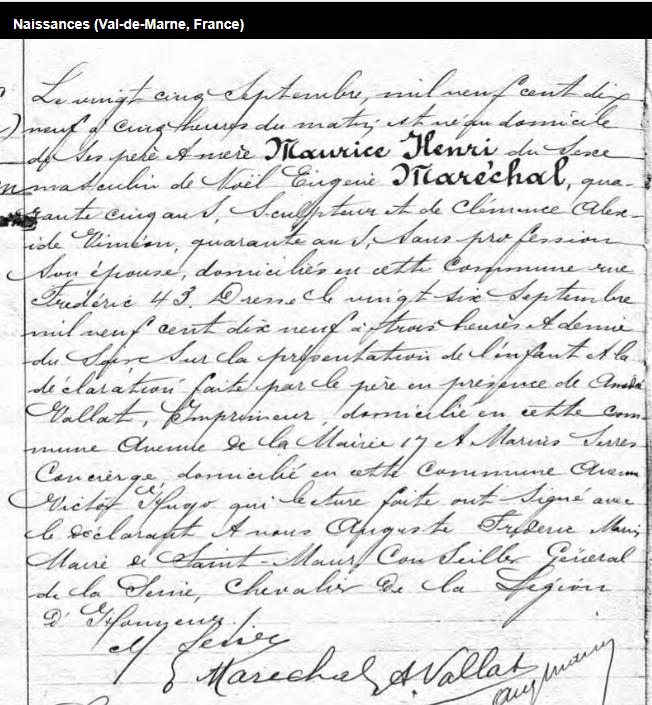 Naissances (Val-de-Marne, France)
Le vingt cinq Septembre, mil neuf cent dix
neuf à cinq heures du matin, est né au domicile
de ses père & mère Maurice Henri du sexe
masculin de Noël Eugène Maréchal, qua-
rante cinq ans, Sculpteur et de Clémence Alex-
ide Viméon, quarante ans, sans profession
son épouse, domiciliés en cette Commune rue
Frédéric 43. Dressé le vingt six Septembre
mil neuf cent dix neuf à trois heures & demie
du soir sur la présentation de l'enfant & la
déclaration faite par le père en présence de André
Vallat, Imprimeur, domicilié en cette com-
mune Avenue de la Mairie 17 & Marius Serres
Concierge, domicilié en cette Commune Avenue
Victor Hugo qui lecture faite ont signé avec
le déclarant & nous Auguste Frédéric Marin
Maire de Saint-Maur, Conseiller Général
de la Seine, Chevalier de la Légion
D'Honneur./.
M
Marechal A. Vallat
Aug Marin